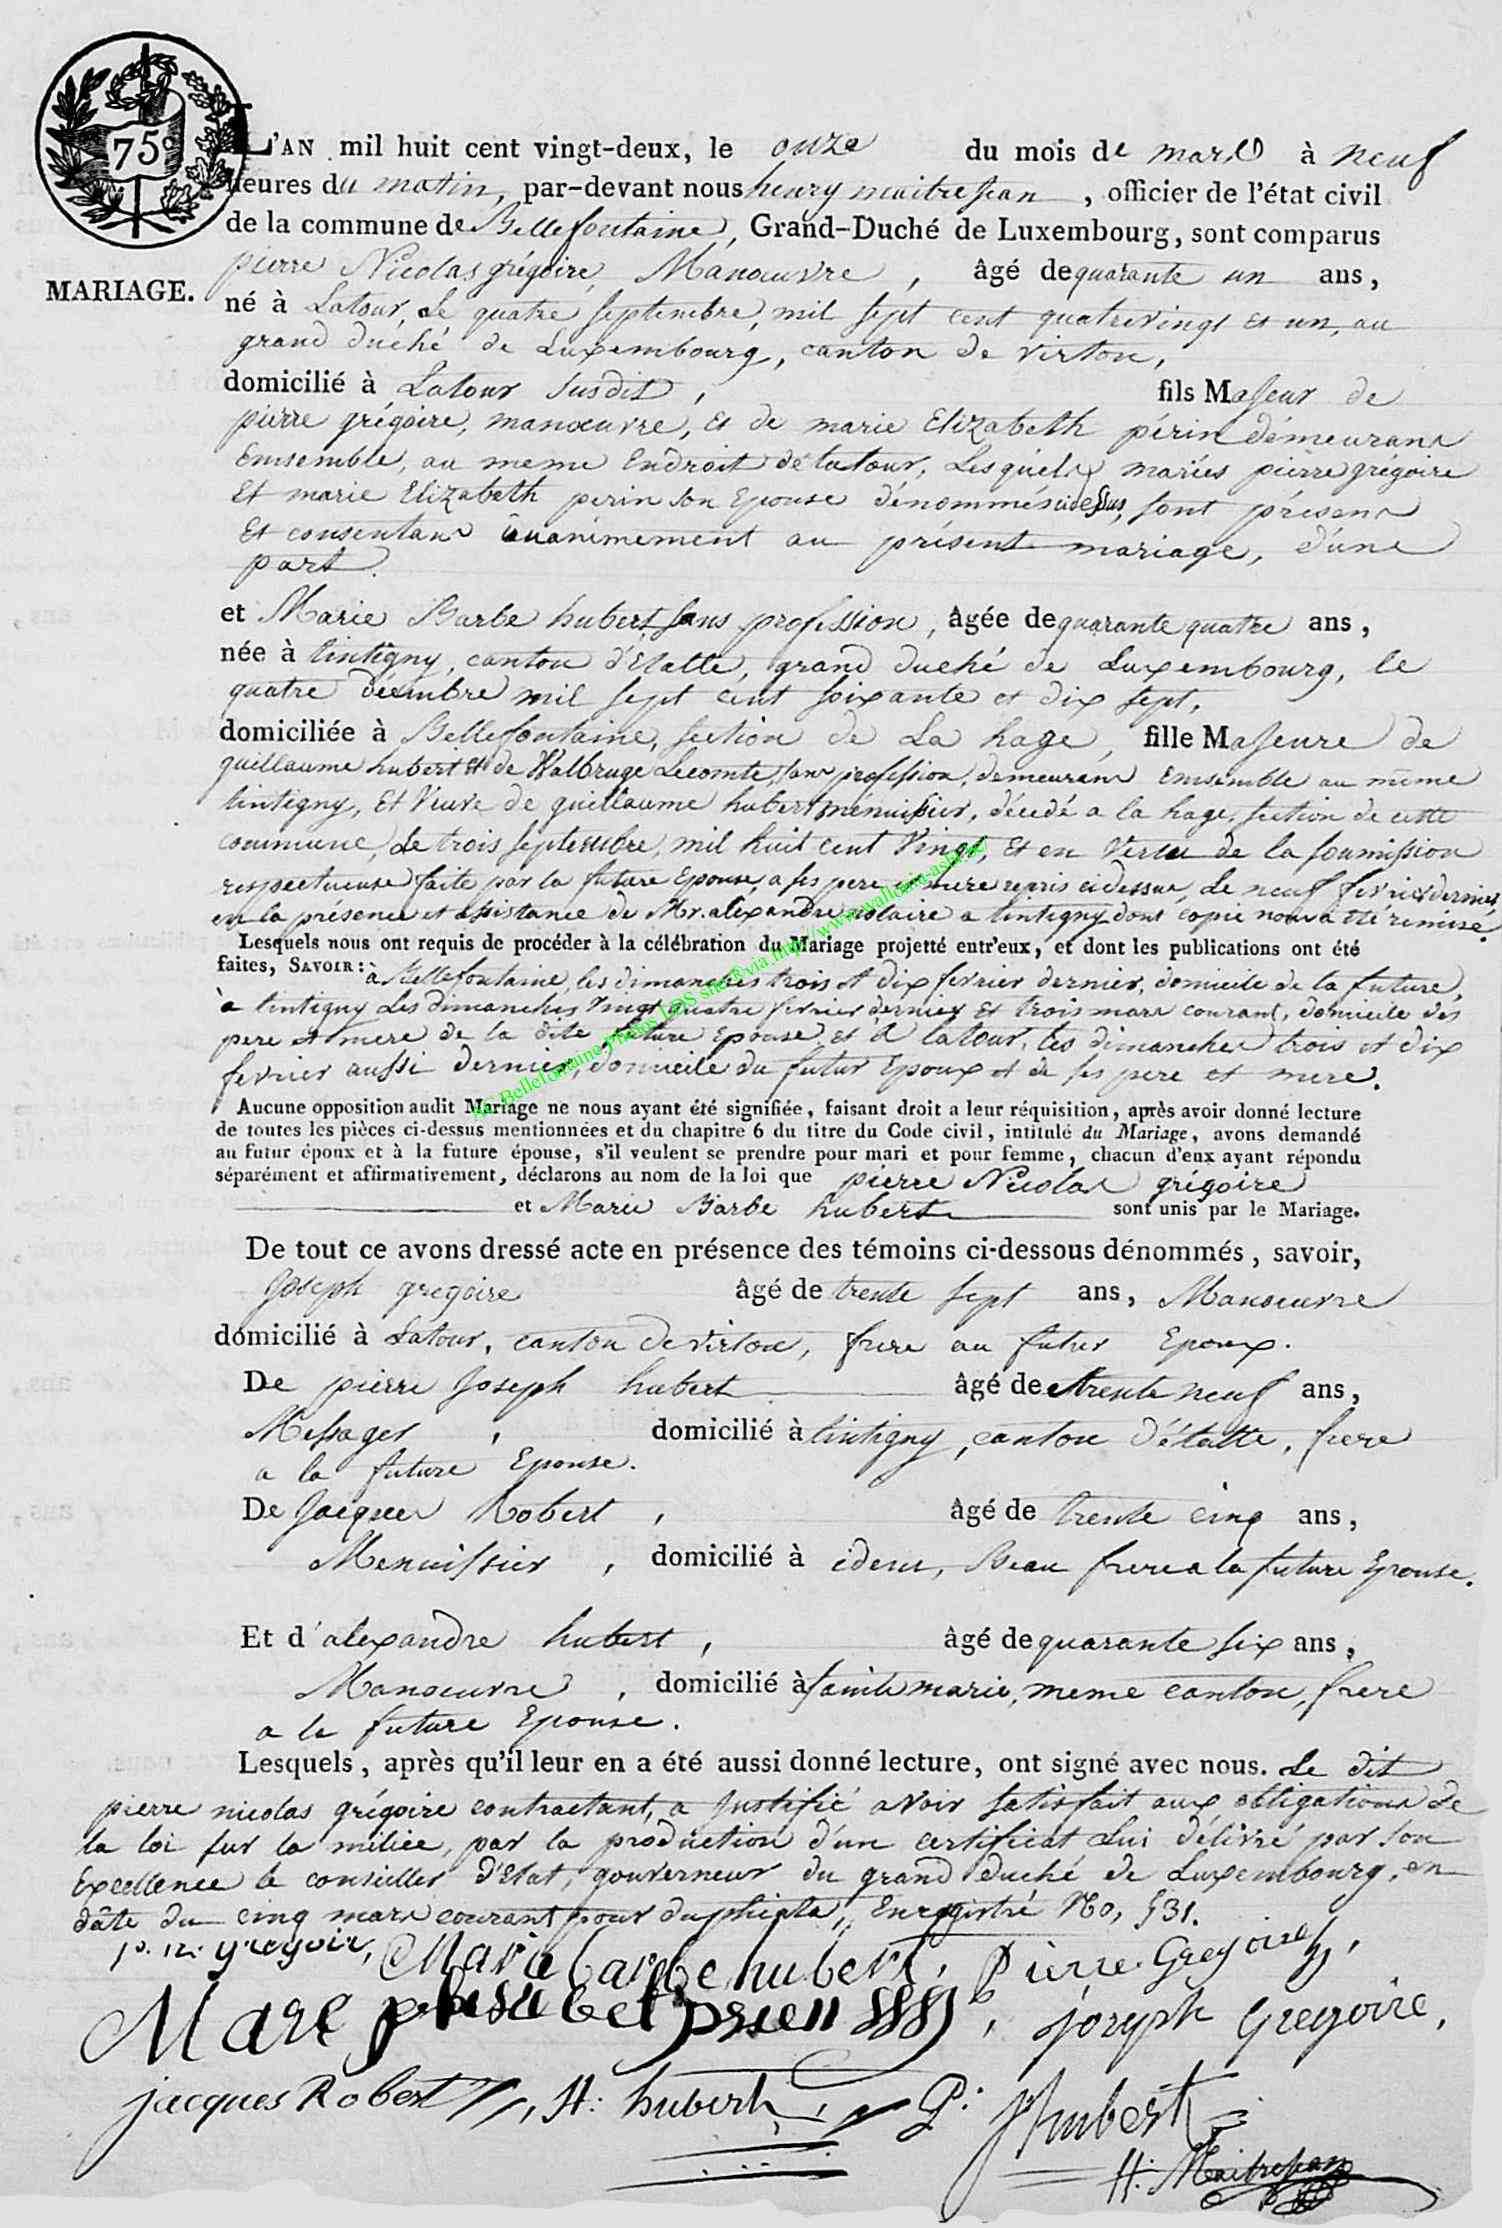 75c
L'AN mil huit cent vingt-deux, le onze du mois de mars à neuf
heures du matin, par-devant nous henry maitrejean, officier de l'état civil
de la commune de Bellefontaine, Grand-Duché de Luxembourg, sont comparus
MARIAGE.
pierre Nicolas grégoire, Manœuvre, âgé de quarante un ans,
né à Latour, Le quatre septembre, mil sept cent quatrevingt et un, au
grand duché de Luxembourg, canton de virton,
domicilié à Latour susdit, fils Majeur de
pierre grégoire, manœuvre, et de marie Elizabeth périn démeurans
Emsemble, au meme Endroit de latour, Lesquels mariés pierre grégoire
Et marie Elizabeth perin son Epouse dénommés cidessus, sont présens
Et consentans unanimement au présent mariage, d'une
part.
et Marie Barbe hubert sans profession, âgée de quarante quatre ans,
née à tintigny, canton d'Etalle, grand duché de Luxembourg, le
quatre décembre mil sept cent soixante et dix sept,
domiciliée à Bellefontaine, section de La hage, fille Majeure de
guillaume hubert et de Walbruge Lecomte, sans profession, demeurans Emsemble au même
tintigny, Et Veuve de guillaume hubert menuisier, décédé a la hage, section de cette
commune, Le trois septembre, mil huit cent Vingt, Et en Vertu de la soumission
respectueuse faite par la future Epouse, a ses pere et mere repris cidessus, Le neuf fevrier dernier
en la présence et assistance de Mr. alexandre notaire a tintigny dont copie nous a été remise.
Lesquels nous ont requis de procéder à la célébration du Mariage projetté entr'eux, et dont les publications ont été
faites, SAVOIR: à Bellefontaine, les dimanches trois et dix fevrier dernier, domicile de la future,
à tintigny Les dimanches Vingt quatre fevrier dernier Et trois mars courant, domicile des
pere et mere de la dite future Epouse et à latour, les dimanches trois et dix
fevrier aussi dernier, domicile du futur Epoux et de ses pere et mere.
Aucune opposition audit Mariage ne nous ayant été signifiée, faisant droit a leur réquisition, après avoir donné lecture
de toutes les pièces ci-dessus mentionnées et du chapitre 6 du titre du Code civil, intitulé du Mariage, avons demandé
au futur époux et à la future épouse, s'il veulent se prendre pour mari et pour femme, chacun d'eux ayant répondu
séparément et affirmativement, déclarons au nom de la loi que pierre Nicolas grégoire
et Marie Barbe hubert sont unis par le Mariage.
De tout ce avons dressé acte en présence des témoins ci-dessous dénommés, savoir,
Joseph gregoire âgé de trente sept ans, Manœuvre
domicilié à Latour, canton de virton, frere au futur Epoux.
De pierre Joseph hubert âgé de trente neuf ans,
Messager, domicilié à tintigny, canton d'étalle, frere
a la future Epouse.
De Jacques Robert, âgé de trente cinq ans,
Menuissier, domicilié à idem, Beau frere a la future Epouse.
Et d'alexandre hubert, âgé de quarante six ans,
Manœuvre, domicilié à sainte marie, meme canton, frere
a la future Epouse.
Lesquels, après qu'il leur en a été aussi donné lecture, ont signé avec nous. Le dit
pierre nicolas grégoire contractant, a Justifié avoir satisfait aux obligations de
la loi sur la milice, par la production d'un certificat Lui délivré par son
Excellence le conseiller d'Etat, gouverneur du grand duché de Luxembourg, en
dâte du cinq mars courant pour duplicata, Enregistré No, 531.
p. n. gregoir, Marie barbe hubert, Pierre Gregoire,
Marie elisabet perin, joseph Gregoire,
jacques Robert, A: hubert, P: J hubert
H: Maitrejean
AC Bellefontaine Photos LDS site & via http://www.wallonia-asbl.be/